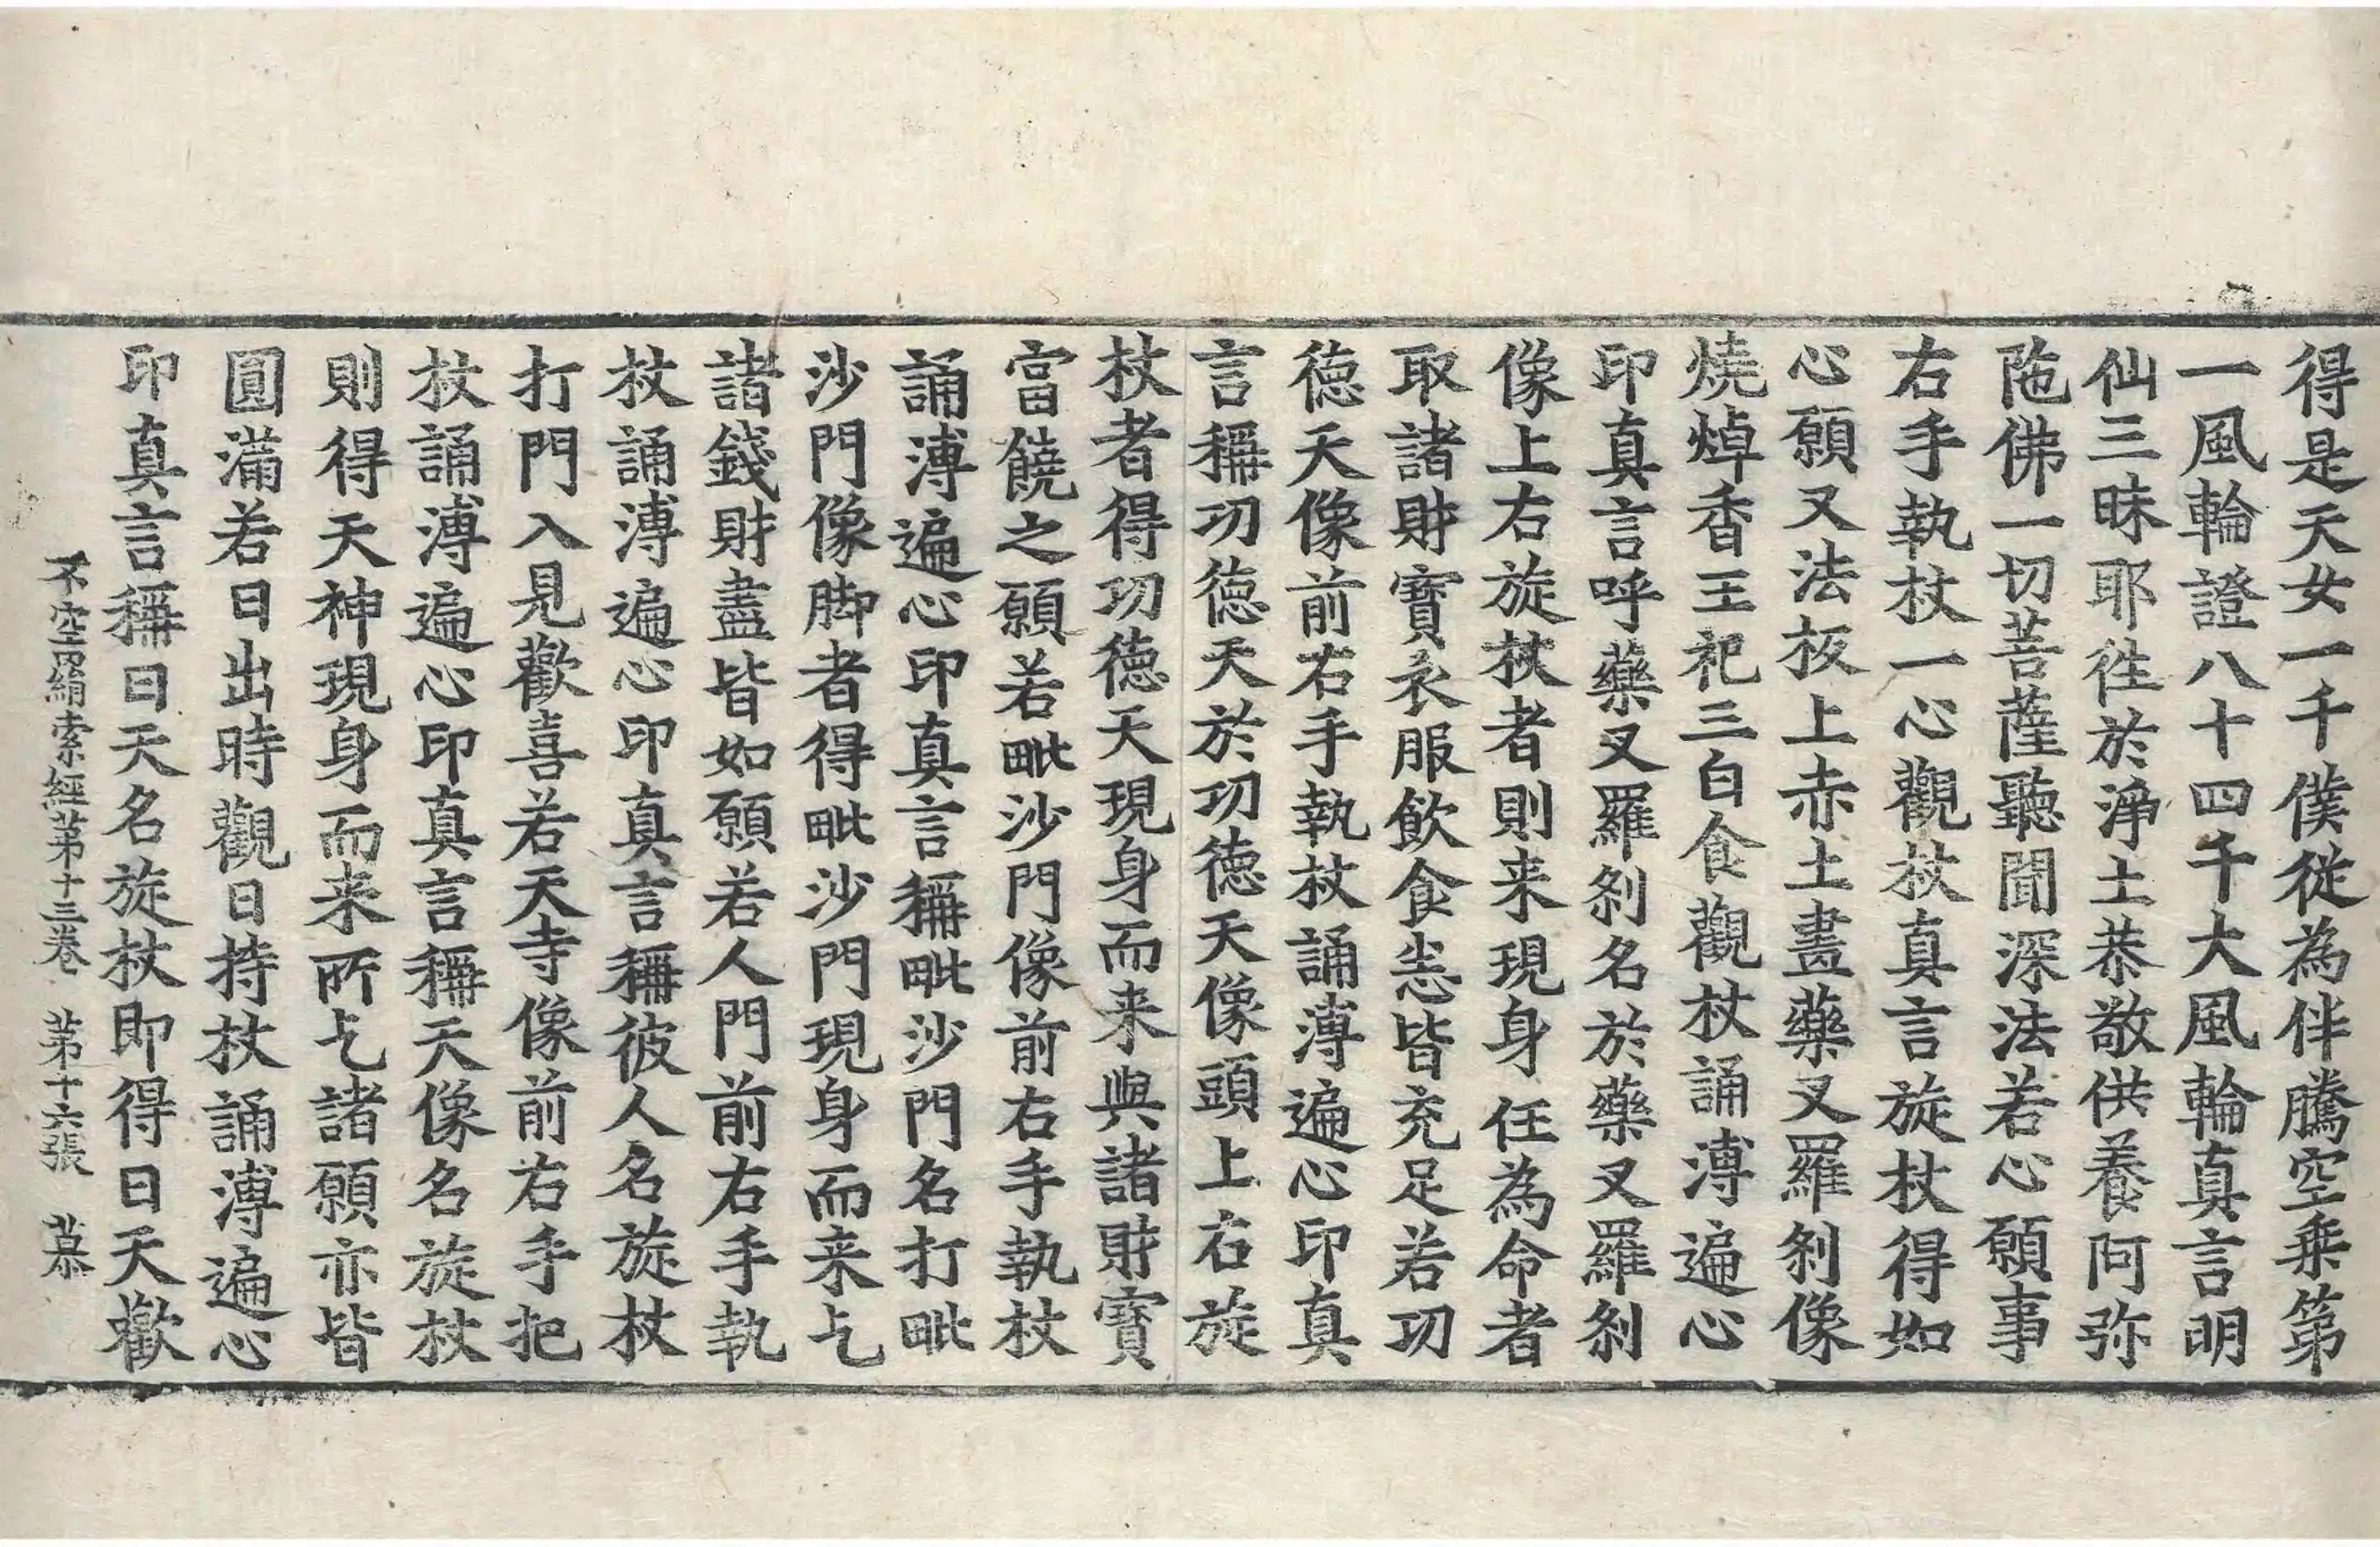 得是天女一千僕從為伴騰空乗第
一風輪證八十四千大風輪真言明
仙三昧耶徃於淨土恭敬供養阿弥
陁佛一切菩薩聽聞深法若心願事
右手執杖一心觀杖真言旋杖得如
心願又法板上赤土畫藥叉羅剎像
燒焯香王祀三白食觀杖誦溥遍心
印真言呼藥叉羅剎名於藥叉羅剎
像上右旋杖者則来現身任為命者
取諸財寶衣服飲食恙皆充足若功
徳天像前右手執杖誦溥遍心印真
言稱功徳天於功徳天像頭上右旋
杖者得功徳天現身而来與諸財寶
當饒之願若毗沙門像前右手執杖
誦溥遍心印真言稱毗沙門名打毗
沙門像脚者得毗沙門現身而来乞
諸錢財盡皆如願若人門前右手執
杖誦溥遍心印真言稱彼人名旋杖
打門入見歡喜若天寺像前右手把
杖誦溥遍心印真言稱天像名旋杖
則得天神現身而来所乞諸願亦皆
圓滿若日出時觀日持杖誦溥遍心
印真言稱日天名旋杖即得日天歡
不空羂索經第十三卷 第十六張 慕